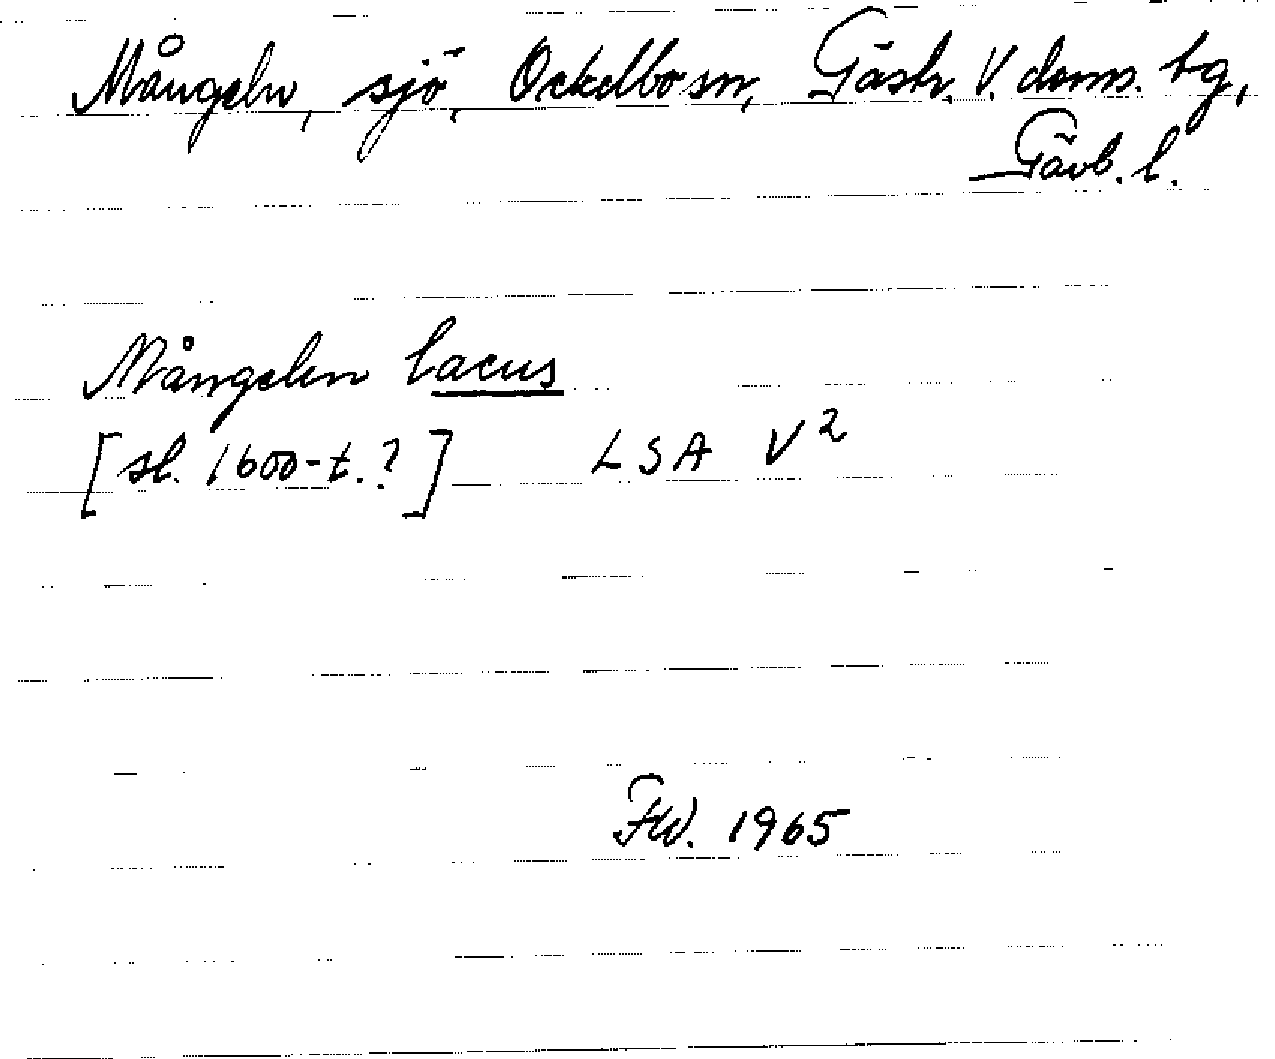 Mångeln, sjö, Ockelbo sn, Gästr. V. doms. tg,
Gävb. l.
Mångelen lacus
[sl. 1600-t.?] LSA V²
FW. 1965